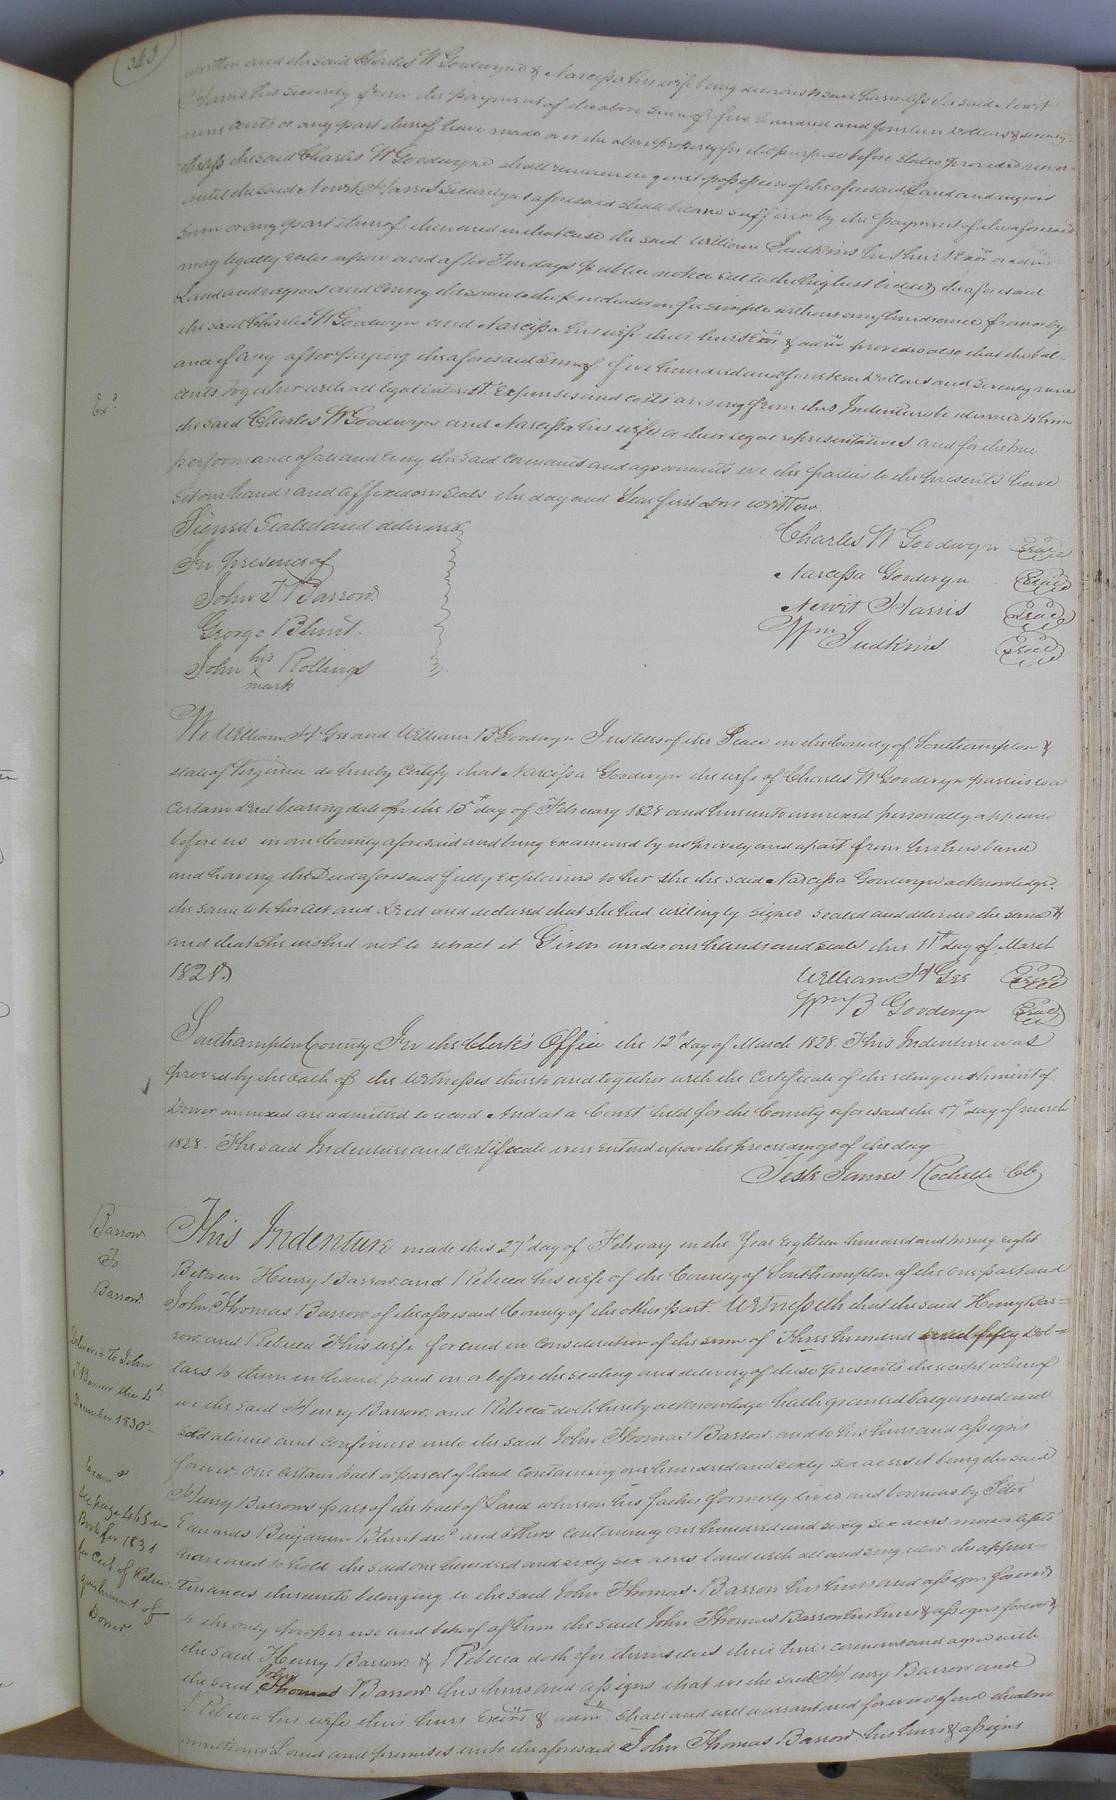 343
written and the said Charles W Goodwyn & Narcissa his wife being desirous to save harmless the said Newit
Harris his security from the payment of the above sum of five hundred and fourteen Dollars & seventy
nine cents or any part thereof have made over the above property for the purpose before stated provided never-
theless the said Charles W Goodwyn shall remain in quiet possession of the aforesaid Land and negroes
until the said Newit Harris Security as aforesaid shall become sufferer by the payment of the aforesaid
sum or any part thereof then and in that case the said William Judkins his heirs Exors or adm
may legally enter upon and after Ten days public notice sell to the highest bidder the aforesaid
Land and negroes and convey the same to the purchaser in fee simple without any hindrance from or by
the said Charles W Goodwyn and Narcissa his wife their heirs Exors & adms provided also that the bal-
ance if any after paying the aforesaid sum of five hundred and fourteen Dollars and Seventy nine
cents together with all legal interest Expenses and costs arising from this Indenture be returned to him
Exd
the said Charles W Goodwyn and Narcissa his wife or their legal representatives and for the true
performance of all and every the said covenants and agreements we the parties to the presents have
set our hands and affixed our seals the day and Year first above written
Signed Sealed and delivered
In presence of
John T Barrow
George Blunt.
John his x mark Rollings
Charles W Goodwyn Seal
Narcissa Goodwyn Seal
Newit Harris Seal
Wm Judkins Seal
We William H Gee and William B Goodwyn Justices of the Peace in the County of Southampton &
state of Virginia do hereby certify that Narcissa Goodwyn the wife of Charles W Goodwyn parties to a
certain Deed bearing date on the 15th day of February 1828 and hereunto annexed personally appeared
before us in our County aforesaid and being examined by us privily and apart from her husband
and having the Deed aforesaid fully explained to her she the said Narcissa Goodwyn acknowledged
the same to be her act and Deed and declared that she had willingly signed sealed and delivered the same &
and that she wished not to retract it Given under our hands and seals this 11th day of March
1828.
William H Gee Seal
Wm B Goodwyn Seal
Southampton County In the Clerk's Office the 12th day of March 1828. This Indenture was
proved by the oath of the witnesses thereto and together with the certificate of the relinquishment of
Dower annexed are admitted to record And at a Court held for the County aforesaid the 17th day of March
1828. The said Indenture and certificate were entered upon the proceedings of the day
Teste James Rochelle CC
Barrow
To
Barrow.
Delivered to John
T Barrow the 4th
December 1830
See page 465 in
Book for 1831
for Cert of Relin-
quishment of
Dower
This Indenture made this 27th day of February in the Year Eighteen hundred and twenty eight
Between Henry Barrow and Rebecca his wife of the County of Southampton of the one part and
John Thomas Barrow of the aforesaid County of the other part. Witnesseth that the said Henry Bar-
row and Rebecca his wife for and in consideration of the sum of Three hundred and fifty Dol-
lars to them in hand paid on or before the sealing and delivery of these presents the receipt whereof
we the said Henry Barrow and Rebecca doth hereby acknowledge hath granted bargained and
sold aliened and confirmed unto the said John Thomas Barrow and to his heirs and assigns
forever. one certain tract or parcel of land containing one hundred and sixty six acres it being the said
Henry Barrows part of the tract of Land whereon his father formerly lived and bounded by Peter
Edwards Benjamin Blunt decd and others containing one hundred and sixty six acres more or less to
have and to hold the said one hundred and sixty six acres land with all and singular the appur-
tenances thereunto belonging to the said John Thomas Barrow his heirs and assigns forever
to the only proper use and behoof of him the said John Thomas Barrow his heirs & assigns forever &
the said Henry Barrow & Rebecca doth for themselves their heirs covenant and agree with
the said John Thomas Barrow his heirs and assigns that we the said Henry Barrow and
Rebecca his wife their heirs Exors & adms shall and will warrant and forever defend the above
mentioned Land and premises unto the aforesaid John Thomas Barrow his heirs & assigns